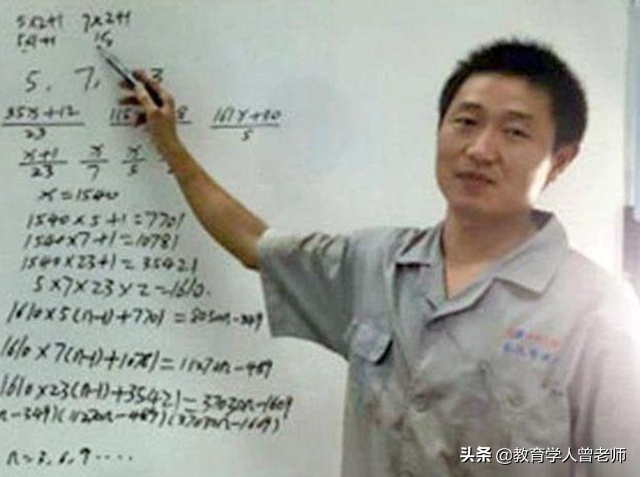 5x2+1 7x2+1
15
5, 7, 3
35x+12 161x+30
23 5
x+1 x x
23 7 5
x=1540
1540×5+1=7701
1540×7+1=10781
1540×23+1=35421
5×7×23×2=1610.
1610×5(n-1)+7701=8050n-349
1610×7(n-1)+10781=11270n-489
1610×23(n-1)+35421=37030n-1609
n-349)(11270n-489)(37030n-1609)
n=3,6,9·····
头条 @教育学人曾老师